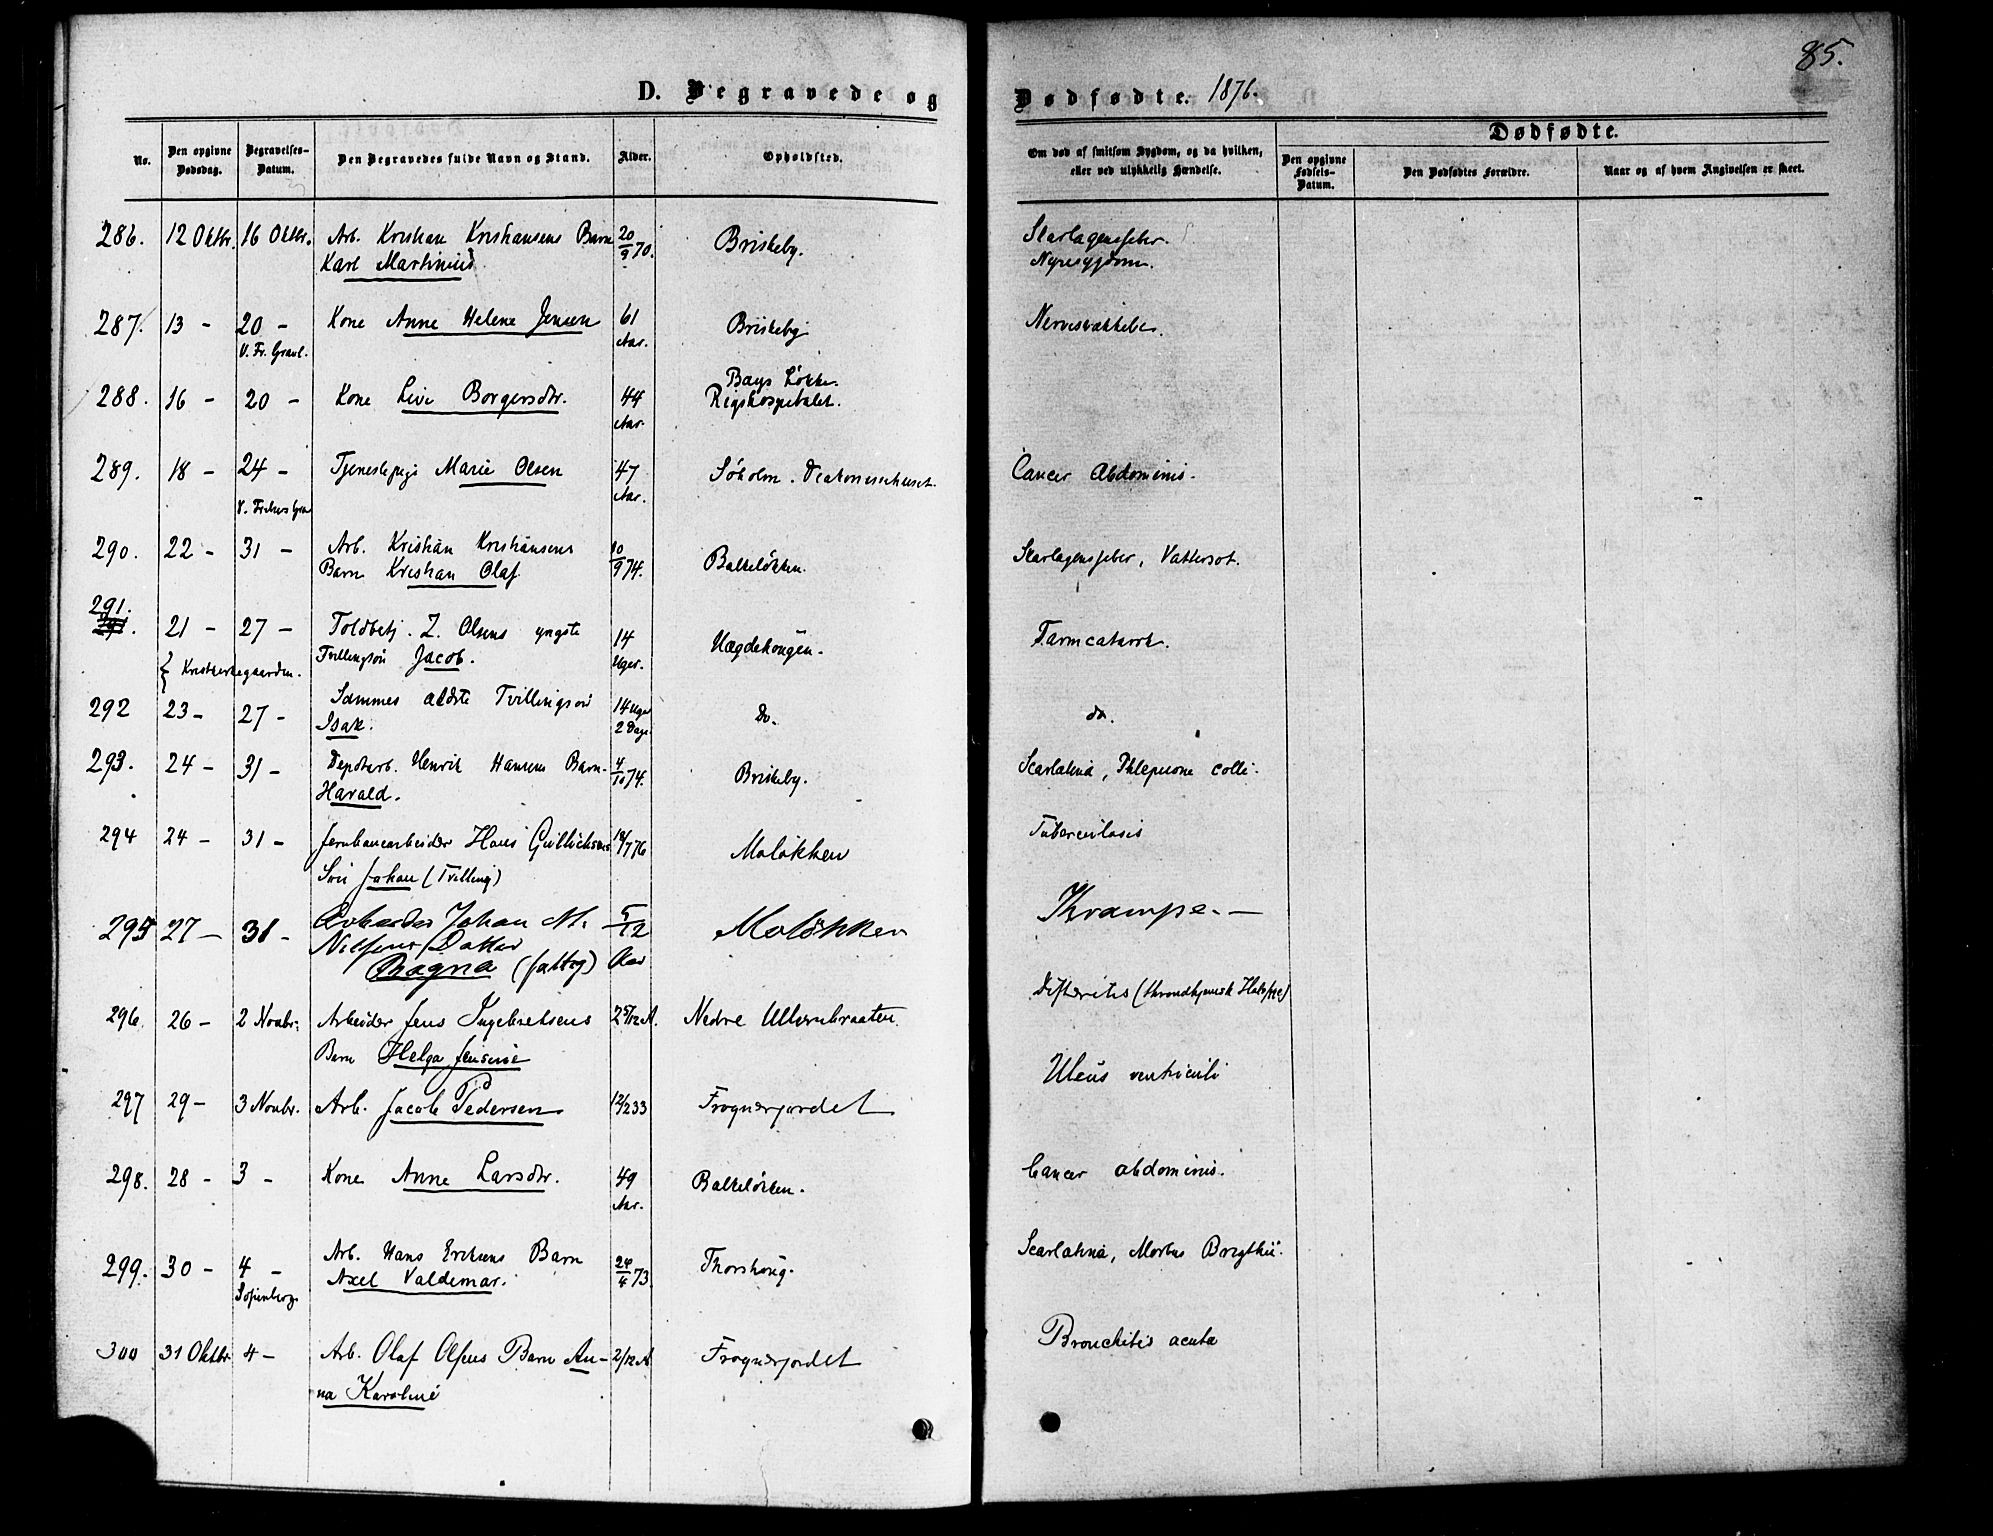 85.
D. Begravede og
Dødfødte. 1876.
No.
Den opgivne Dødsdag.
Begravelses-Datum.
Den Begravedes fulde Navn og Stand.
Alder.
Opholdsted.
Om død af smitsom Sygdom, og da hvilken, eller ved ulykkelig Hændelse.
Dødfødte.
Den opgivne Fødsels-Datum.
Den Dødfødtes Forældre.
Naar og af hvem Angivelsen er skeet.
286. 12 Oktbr. 16 Oktbr. Arb. Kristian Kristiansens Barn 20/9 70. Briskeby. Skarlagensfeber.
Karl Martinius. Nyresygdom.
287. 13 - 20 - Kone Anne Helene Jensen 61 Aar. Briskeby Nervesvækkelse.
V. Fr. Gravl.
288. 16 - 20 - Kone Live Borgersdtr. 44 Aar. Bays Løkke.
Rigshospitalet.
289. 18 - 24 - Tjenestepige Marie Olsen 47 Aar. Søholm. Diakonissehuset. Cancer Abdominis.
V. Frelsers Gra
290. 22 - 31 - Arb. Kristian Kristiansens 10/9 74. Balkeløkken. Skarlagensfeber, Vattersot.
Barn Kristian Olaf
291. 21 - 27 - Toldbetj. Z. Olsens yngste 14 Uger. Hægdehougen. Tarmcatarrh.
Tvillingsøn Jacob.
{ Kristkirkegaarden.
292 23 - 27 - Sammes ældste Tvillingsøn 14 Uger 2 Dage Do. do.
Isak.
293. 24 - 31 - Depotarb. Henrik Hansens Barn 4/10 74. Briskeby. Scarlatina, Phlegmone colli.
Harald.
294 24 - 31 - Jernbanearbeider Hans Gullichsens 18/7 76 Moløkken Tuberculosis
Søn Johan (Tvilling)
295 27 - 31 - Arbeider Johan M. 5/12 Aar Moløkken Krampe. -
Nilsens Datter
Ragna (fattig)
296. 26 - 2 Novbr. Arbeider Jens Ingebretsens 2 5/12 A. Nedre Ullernbraaten. Difteritis (throndhjemsk Halssyge)
Barn Helga Jensine
297 29 - 3 Novbr. Arb. Jacob Pedersen 12/2 33 Frognerjordet Ulcus ventriculi
298. 28 - 3 - Kone Anne Larsdtr. 49 Aar. Balkeløkken. Cancer abdominis.
299. 30 - 4 - Arb. Hans Eriksens Barn 24/4 73. Thorshoug. Scarlatina, Morbus Brigthii.
Axel Valdemar.
Sofienberg.
300 31 Oktbr. 4 - Arb. Olaf Olsens Barn An- 2/12 A. Frognerjordet Bronchitis acuta
na Karoline